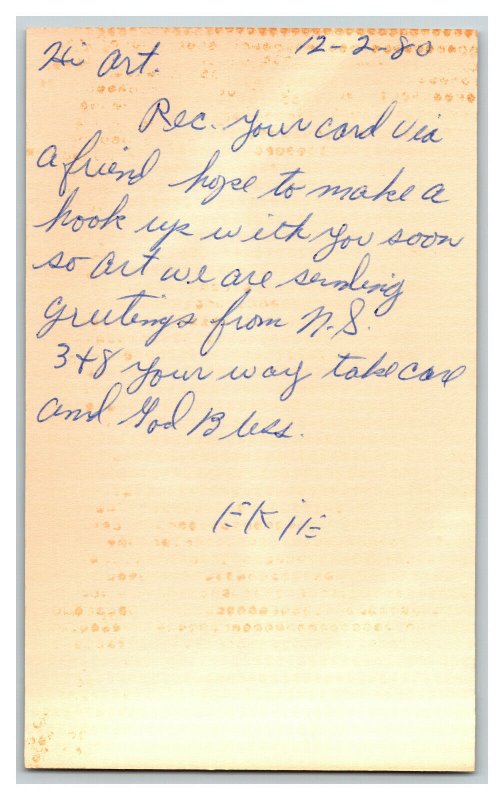 12-2-80
Hi Art.
Rec. your card via
a friend hope to make a
hook up with you soon
so Art we are sending
greetings from N.S.
3+8 your way take care
and God Bless.
EKIE